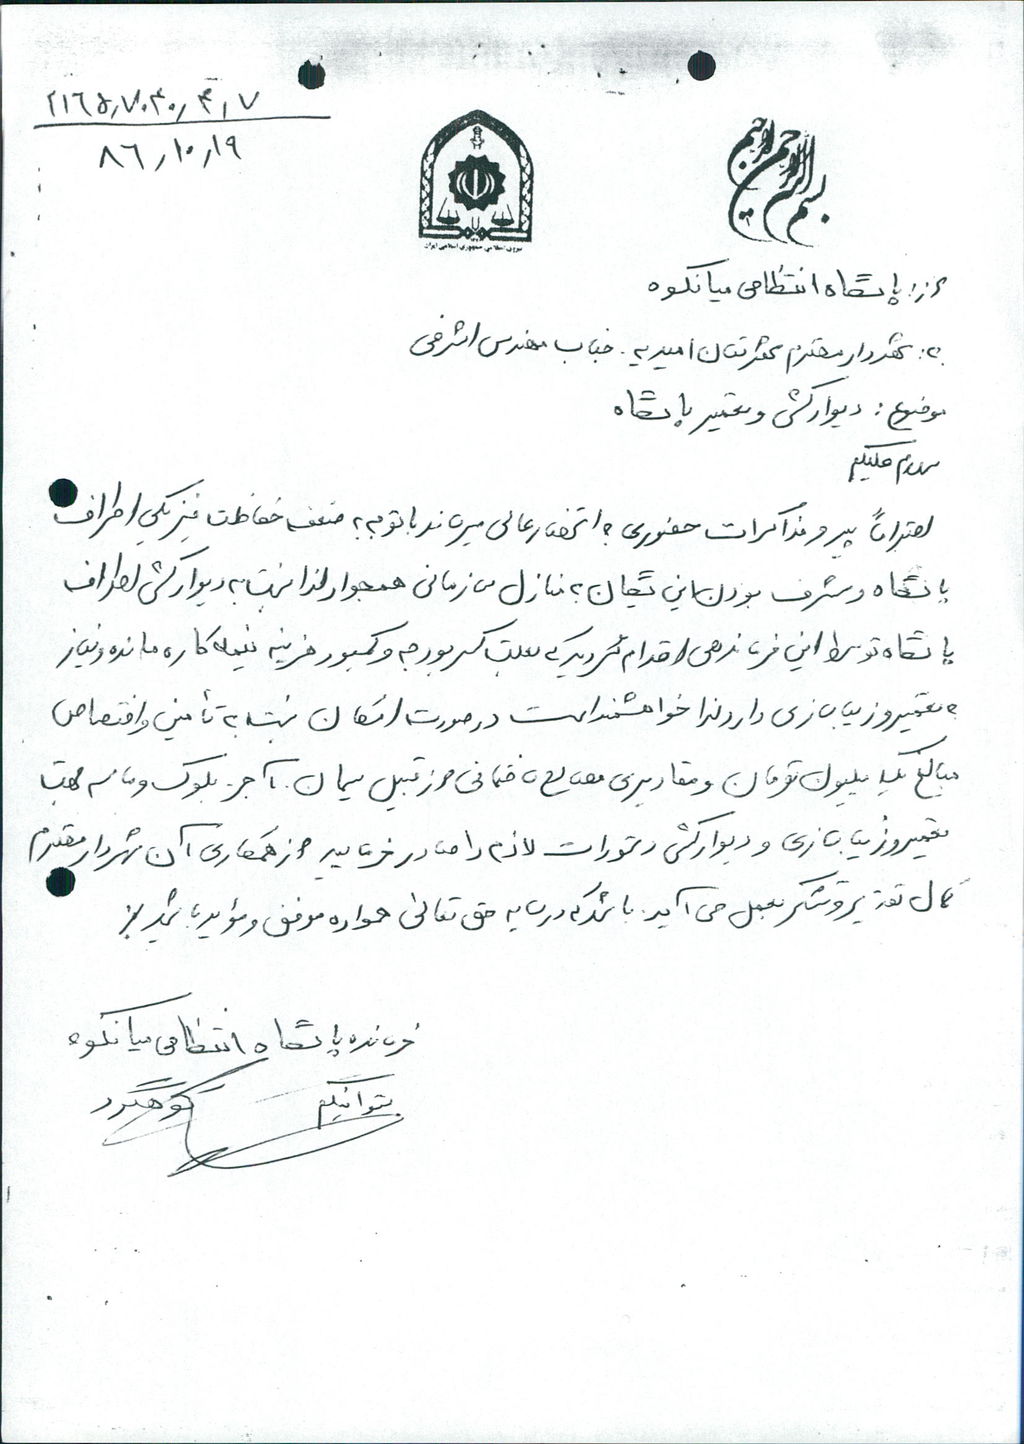 ۲۱۶۵٫۷۰۴۰٫۴٫۷
۸۶٫۱۰٫۱۹
بسم الله الرحمن الرحیم
نیروی انتظامی جمهوری اسلامی ایران
از: پاسگاه انتظامی میانکوه
به: شهردار محترم شهرستان امیدیه. جناب مهندس اشرفی
موضوع: دیوارکشی و تعمیر پاسگاه
سلام علیکم
احتراماً پیرو مذاکرات حضوری به استحضار عالی میرساند باتوجه به ضعف حفاظت فیزیکی اطراف
پاسگاه و مشرف بودن این مکان به منازل سازمانی همجوار لذا نسبت به دیوارکشی اطراف
پاسگاه توسط این فرماندهی اقدام گردید که بعلت کسر بودجه و کمبود هزینه نیمه کاره مانده و نیاز
به تعمیر و زیباسازی دارد لذا خواهشمند است در صورت امکان نسبت به تأمین و اختصاص
مبالغ میلیون تومان و مقادیری مصالح ساختمانی از قبیل سیمان. آجر. بلوک و ماسه جهت
تعمیر و زیباسازی و دیوارکشی دستورات لازم را صادر فرمایید از همکاری آن شهردار محترم
کمال تقدیر و تشکر بعمل می آید. باشد که در سایه حق تعالی همواره موفق و مؤید باشید
فرمانده پاسگاه انتظامی میانکوه
ستوانیکم کوهگرد